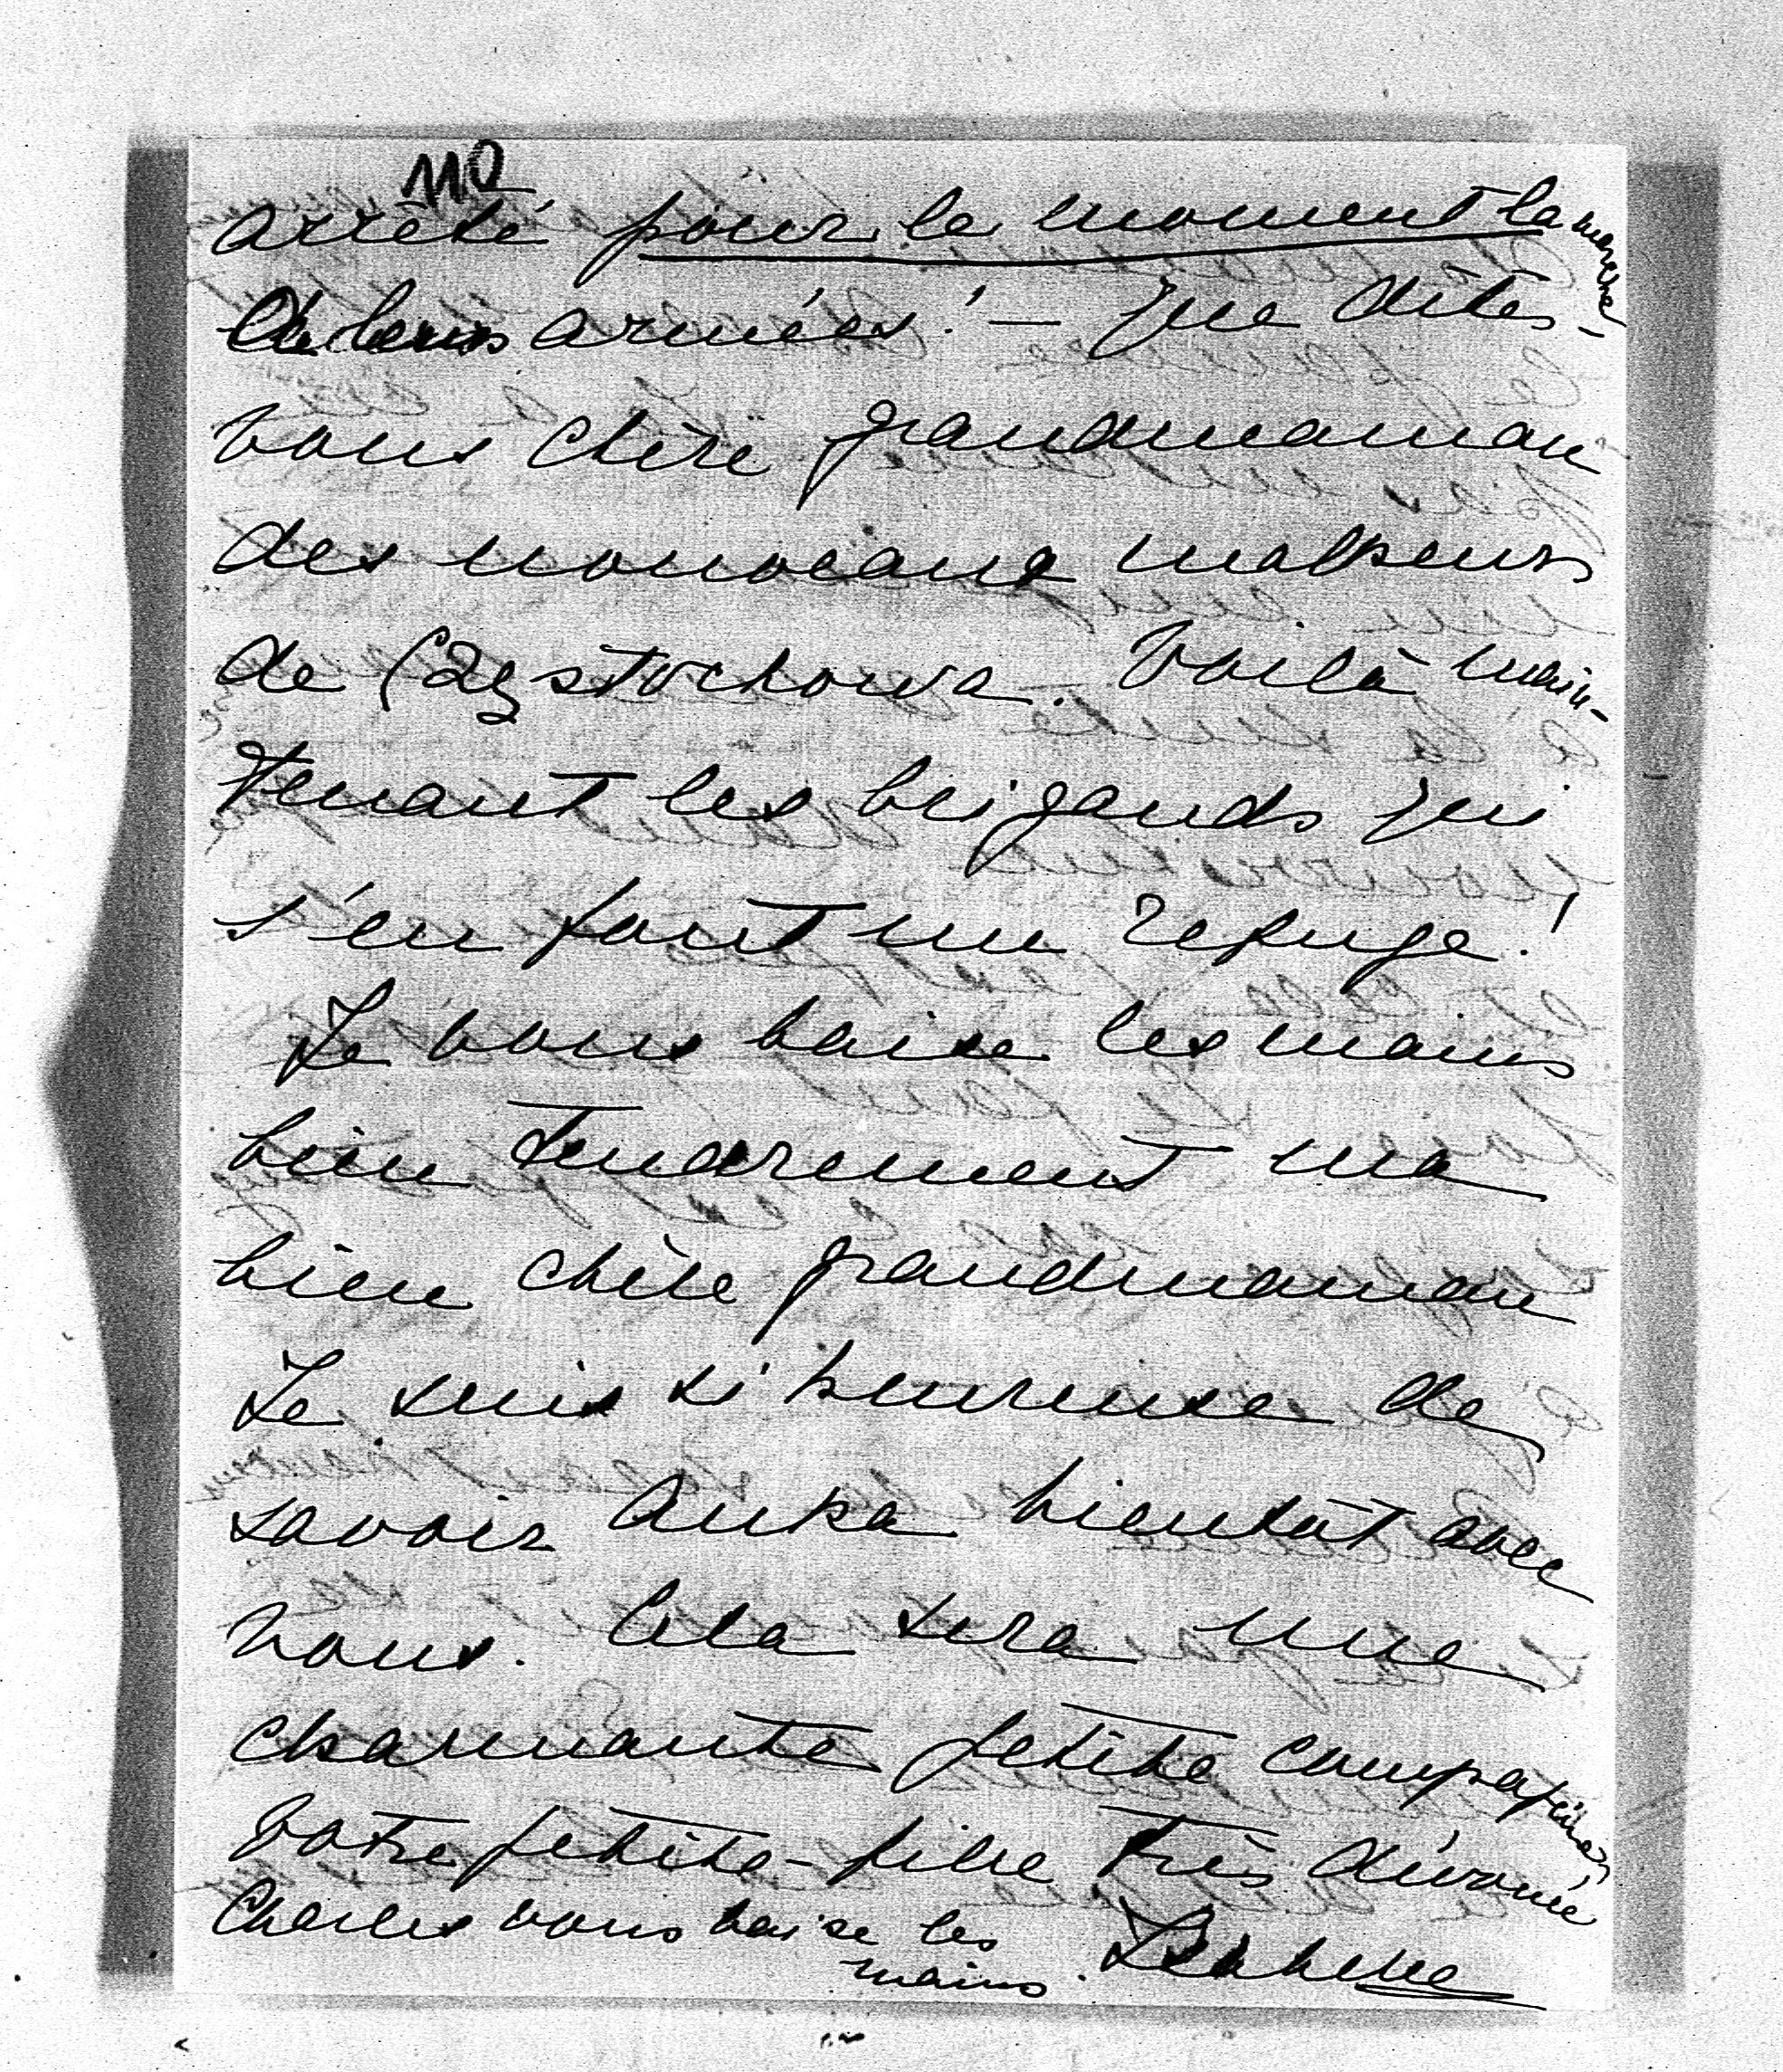 110
arrêté pour le moment la marche
de leurs armées! — Que dites-
vous chère grandmaman
des nouveaux malheurs
de Częstochowa. Voilà main-
tenant les brigands qui
s'en font un refuge!
Je vous baise les mains
bien tendrement ma
bien chère grandmaman
Je suis si heureuse de
savoir Anka bientôt avec
vous. Cela sera une
charmante petite compagnie
Votre petite-fille très dévouée
Charles vous baise les
mains. Isabelle